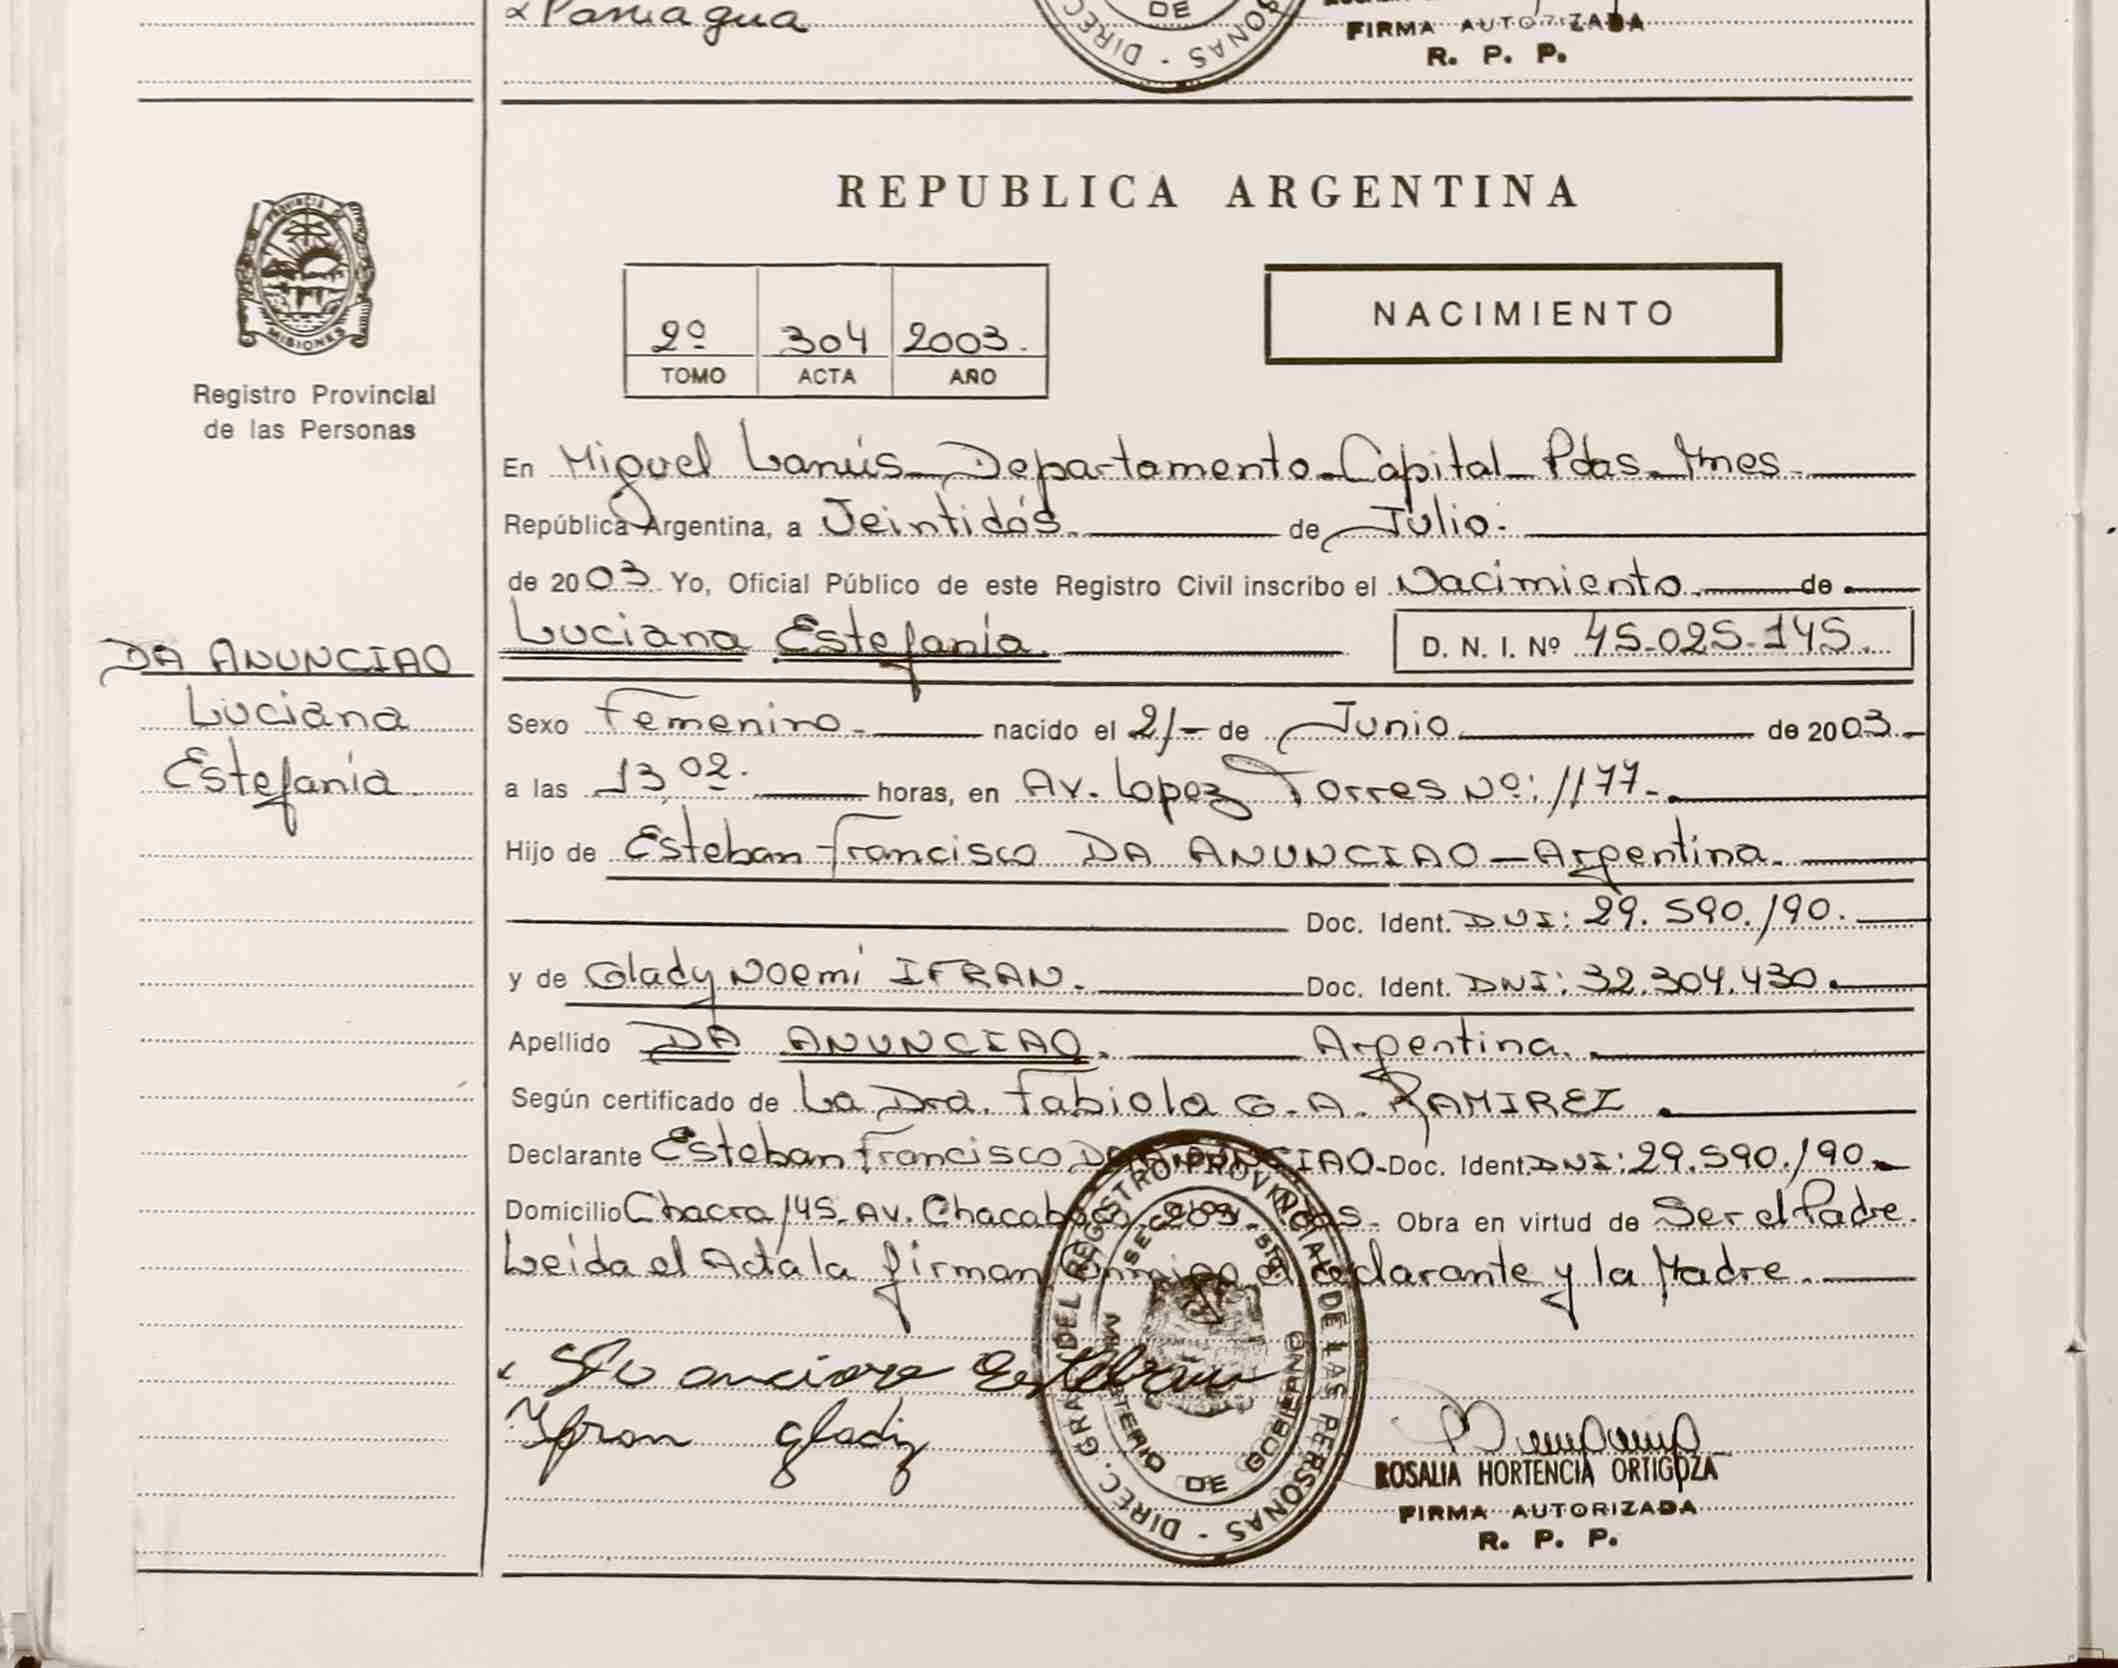 Paniagua
DE
DIREC
SONAS
FIRMA AUTORIZADA
R. P. P.
PROVINCIA DE
MISIONES
Registro Provincial
de las Personas
REPUBLICA ARGENTINA
2º 304 2003.
TOMO ACTA AÑO
NACIMIENTO
En Miguel Lanús Departamento Capital Pdas Mnes.
República Argentina, a Veintidós de Julio.
de 2003. Yo, Oficial Público de este Registro Civil inscribo el Nacimiento. de
Luciana Estefanía. D. N. I. Nº 45.025.145.
DA ANUNCIAO
Luciana
Estefanía.
Sexo Femenino. nacido el 21 de Junio de 2003.
a las 13 02. horas, en Av. Lopez Torres Nº: 1177.
Hijo de Esteban Francisco DA ANUNCIAO-Argentina.
Doc. Ident. DNI: 29.590.190.
y de Glady Noemí IFRAN. Doc. Ident. DNI: 32.304.430.
Apellido DA ANUNCIAO. Argentina.
Según certificado de La Dra. Fabiola G. A. RAMIREZ.
Declarante Esteban Francisco DA ANUNCIAO-Doc. Ident. DNI: 29.590.190.
Domicilio Chacra 145. Av. Chacabuco Pdas. Obra en virtud de Ser el Padre.
Leída el Acta la firman conmigo el declarante y la Madre.
Esteban
Ifran glady
DIREC. GRAL. DEL REGISTRO PROVINCIAL DE LAS PERSONAS
MINISTERIO DE GOBIERNO
ROSALIA HORTENCIA ORTIGOZA
FIRMA AUTORIZADA
R. P. P.